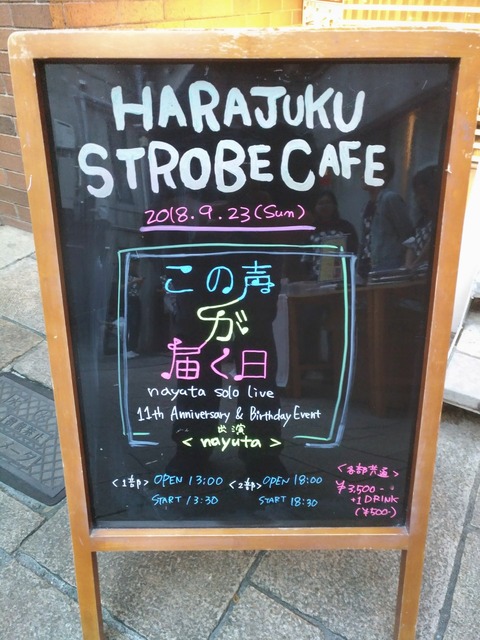 HARAJUKU
STROBE CAFE
2018.9.23(Sun)
この声
が
届く日
nayata solo live
11th Anniversary & Birthday Event
出演
< nayuta >
<1部> OPEN 13:00 <2部> OPEN 18:00
START 13:30 START 18:30
<各部共通>
¥3,500-
+1 DRINK
(¥500-)